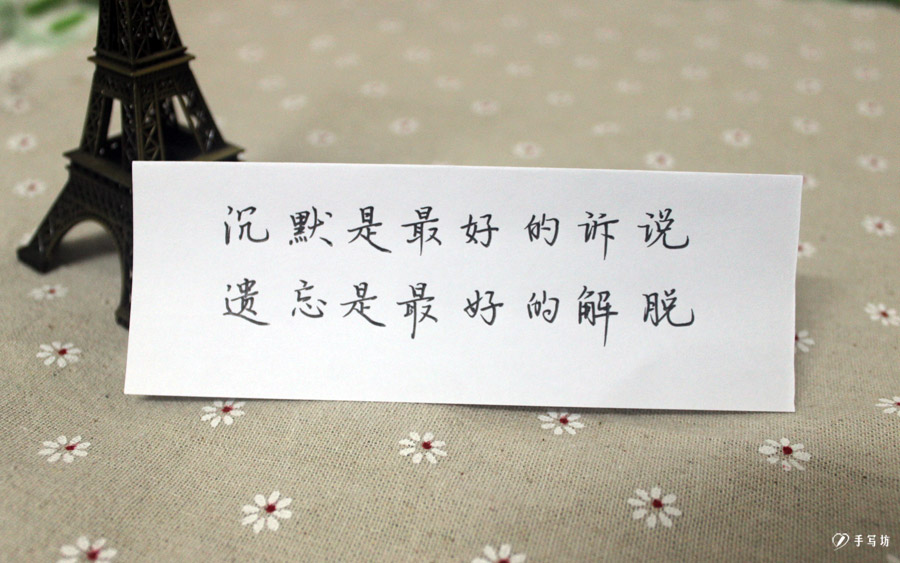 沉默是最好的诉说
遗忘是最好的解脱
手写坊